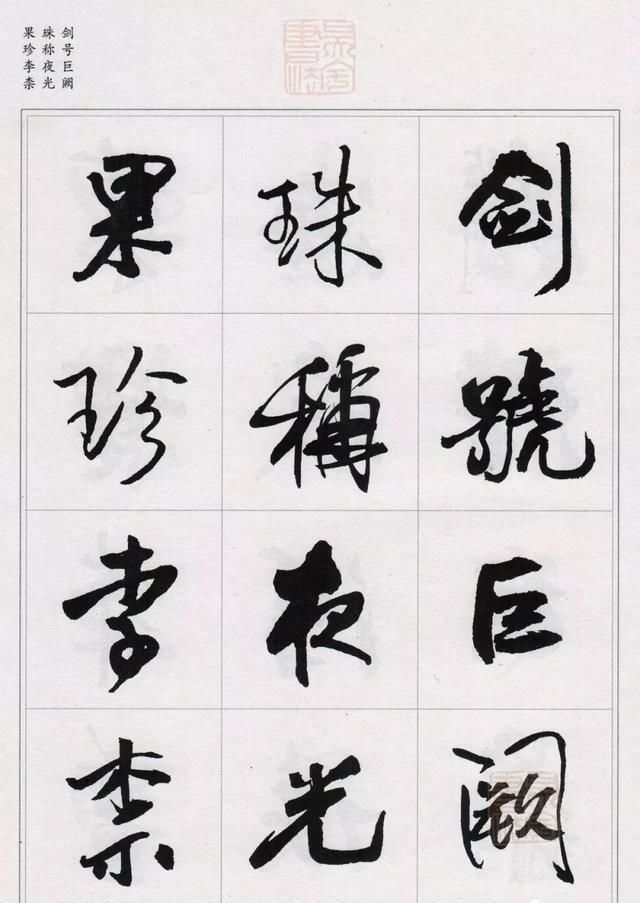 剑号巨阙
珠称夜光
果珍李柰
劍號巨闕
珠稱夜光
果珍李柰